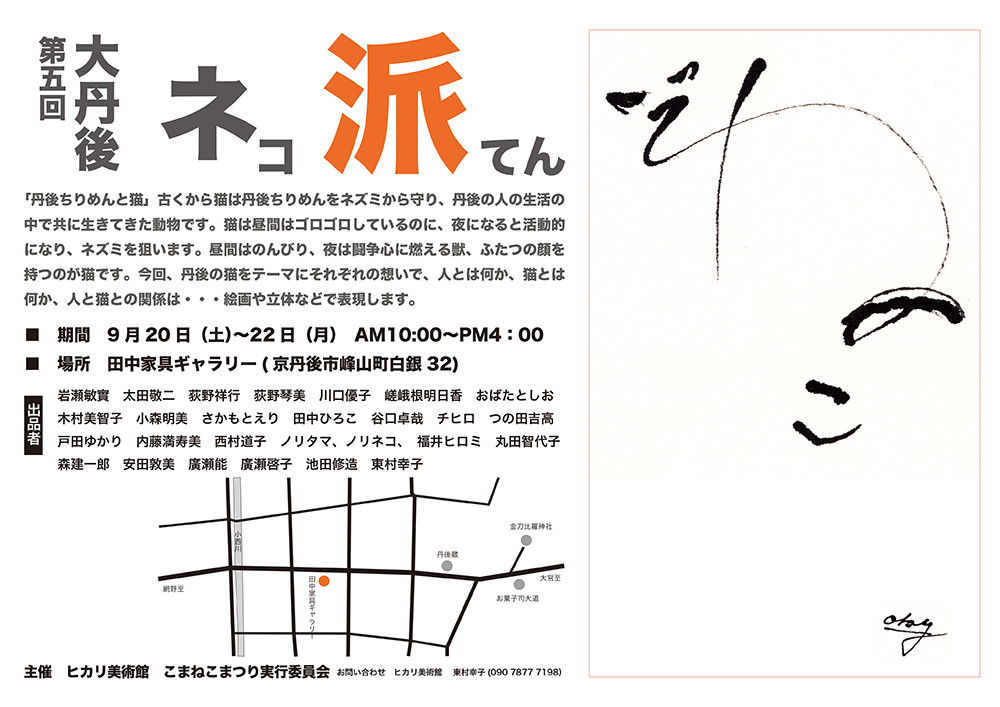 第五回
大丹後
ネコ派てん
「丹後ちりめんと猫」古くから猫は丹後ちりめんをネズミから守り、丹後の人の生活の
中で共に生きてきた動物です。猫は昼間はゴロゴロしているのに、夜になると活動的
になり、ネズミを狙います。昼間はのんびり、夜は闘争心に燃える獣、ふたつの顔を
持つのが猫です。今回、丹後の猫をテーマにそれぞれの想いで、人とは何か、猫とは
何か、人と猫との関係は・・・絵画や立体などで表現します。
■ 期間 9月20日（土）〜22日（月） AM10:00〜PM4：00
■ 場所 田中家具ギャラリー(京丹後市峰山町白銀 32)
出品者
岩瀬敏實 太田敬二 荻野祥行 荻野琴美 川口優子 嵯峨根明日香 おばたとしお
木村美智子 小森明美 さかもとえり 田中ひろこ 谷口卓哉 チヒロ つの田吉高
戸田ゆかり 内藤満寿美 西村道子 ノリタマ、ノリネコ、 福井ヒロミ 丸田智代子
森建一郎 安田敦美 廣瀬能 廣瀬啓子 池田修造 東村幸子
小西川
網野至
田中家具ギャラリー
丹後蔵
金刀比羅神社
大宮至
お菓子司大道
主催 ヒカリ美術館 こまねこまつり実行委員会 お問い合わせ ヒカリ美術館 東村幸子(090 7877 7198)
ねこ